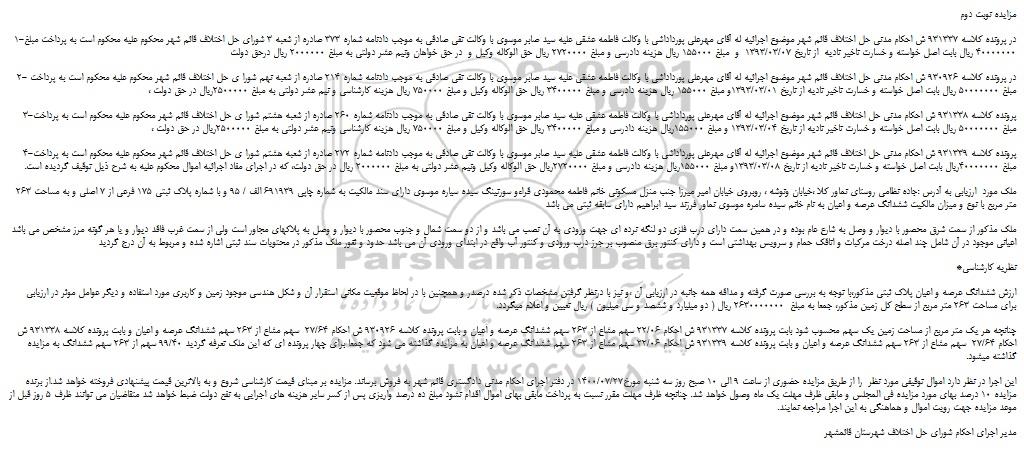 مزایده نوبت دوم
در پرونده کلاسه ۹۳۱۳۳۷ ش احکام مدتی حل اختلاف قائم شهر موضوع اجرائیه له آقای مهرعلی پورداداشی با وکالت فاطمه عشقی علیه سید صابر موسوی با وکالت تقی صادقی به موجب دادنامه شماره ۳۷۳ صادره از شعبه ۳ شورای حل اختلاف قائم شهر محکوم علیه محکوم است به پرداخت مبلغ-۱
۴۰۰۰۰۰۰۰ ریال بابت اصل خواسته و خسارت تاخیر تادیه از تاریخ ۱۳۹۳/۰۳/۰۷ و مبلغ ۱۵۵۰۰۰ ریال هزینه دادرسی و مبلغ ۲۷۲۰۰۰۰ ریال حق الوکاله وکیل و در حق خواهان ونیم عشر دولتی به مبلغ ۲۰۰۰۰۰۰ ریال درحق دولت
در پرونده کلاسه ۹۳۰۹۲۶ ش احکام مدتی حل اختلاف قائم شهر موضوع اجرائیه له آقای مهرعلی پورداداشی با وکالت فاطمه عشقی علیه سید صابر موسوی با وکالت تقی صادقی به موجب دادنامه شماره ۲۱۴ صادره از شعبه نهم شورا ی حل اختلاف قائم شهر محکوم علیه محکوم است به پرداخت -۲
مبلغ ۵۰۰۰۰۰۰۰ ریال بابت اصل خواسته و خسارت تاخیر تادیه از تاریخ ۱۳۹۳/۰۳/۰۱و مبلغ ۱۵۵۰۰۰ ریال هزینه دادرسی و مبلغ ۳۴۰۰۰۰۰ ریال حق الوکاله وکیل و مبلغ ۷۵۰۰۰۰ ریال هزینه کارشناسی و نیم عشر دولتی به مبلغ ۲۵۰۰۰۰۰ریال در حق دولت ،
پرونده کلاسه ۹۳۱۳۳۸ ش احکام مدتی حل اختلاف قائم شهر موضوع اجرائیه له آقای مهرعلی پورداداشی با وکالت فاطمه عشقی علیه سید صابر موسوی با وکالت تقی صادقی به موجب دادنامه شماره ۲۶۰ صادره از شعبه هشتم شورا ی حل اختلاف قائم شهر محکوم علیه محکوم است به پرداخت-۳
مبلغ ۵۰۰۰۰۰۰۰ ریال بابت اصل خواسته و خسارت تاخیر تادیه از تاریخ ۱۳۹۳/۰۳/۰۴ و مبلغ ۱۵۵۰۰۰ریال هزینه دادرسی و مبلغ ۳۴۰۰۰۰۰ ریال حق الوکاله وکیل و مبلغ ۷۵۰۰۰۰ ریال هزینه کارشناسی ونیم عشر دولتی به مبلغ ۲۵۰۰۰۰۰ریال در حق دولت ،
پرونده کلاسه ۹۳۱۳۳۹ ش احکام مدتی حل اختلاف قائم شهر موضوع اجرائیه له آقای مهرعلی پورداداشی با وکالت فاطمه عشقی علیه سید صابر موسوی با وکالت تقی صادقی به موجب دادنامه شماره ۲۷۲ صادره از شعبه هشتم شورا ی حل اختلاف قائم شهر محکوم علیه محکوم است به پرداخت-۴
مبلغ۴۰۰۰۰۰۰۰ ریال بابت اصل خواسته و خسارت تاخیر تادیه از تاریخ ۱۳۹۳/۰۳/۰۸و مبلغ ۱۵۵۰۰۰ریال هزینه دادرسی و مبلغ ۲۷۲۰۰۰۰ریال حق الوکاله وکیل ونیم عشر دولتی به مبلغ ۲۰۰۰۰۰۰ ریال در حق دولت، که در اجرای مفاد اجرائیه اموال محکوم علیه به شرح ذیل توقیف گردیده است.
ملک مورد ارزیابی به آدرس :جاده نظامی روستای نماور کلا ،خیابان ونوشه ، روبروی خیابان امیر میرزا جنب منزل مسکونی خانم فاطمه محمودی قراء و سورتینگ سیده ساره موسوی دارای سند مالکیت به شماره چاپی ۶۹۱۹۳۹ الف / ۹۵ و با شماره پلاک ثبتی ۱۷۵ فرعی از ۷ اصلی و به مساحت ۲۶۳
متر مربع با نوع و میزان مالکیت ششدانگ عرصه و اعیان به نام خانم سیده سامره موسوی نماور فرزند سید ابراهیم دارای سابقه ثبتی می باشد
ملک مذکور از سمت شرق محصور با دیوار و وصل به شارع عام بوده و در همین سمت دارای درب فلزی دو لنگه نرده ای جهت ورودی به آن نصب می باشد و از دو سمت شمال و جنوب محصور با دیوار و وصل به پلاکهای مجاور است ولی از سمت غرب فاقد دیوار و یا هر گونه مرز مشخص می باشد
اعیانی موجود در آن شامل چند اصله درخت مرکبات و اتاقک حمام و سرویس بهداشتی است و دارای کنتور برق منصوب بر جرز درب ورودی و کنتور آب واقع در ابتدای ورودی آن می باشد حدود و ثغور ملک مذکور در محتویات سند ثبتی اشاره شده و مربوط به آن درج گردید
نظریه کارشناسی*
ارزش ششدانگ عرصه و اعیان پلاک ثبتی مذکور،با توجه به بررسی صورت گرفته و مداقه همه جانبه در ارزیابی آن ،و نیز با درنظر گرفتن مشخصات ذکر شده درصدر و همچنین با در لحاظ موقعیت مکانی استقرار آن و شکل هندسی موجود زمین و کاربری مورد استفاده و دیگر عوامل موثر در ارزیابی
برای مساحت ۲۶۳ متر مربع از سطح کل زمین مذکور، جمعا به مبلغ ۲۶۳۰۰۰۰۰۰۰ ریال ( دو میلیارد و ششصد و سی میلیون ) ریال تعیین و اعلام میگردد.
چنانچه هر یک متر مربع از مساحت زمین یک سهم محسوب شود بابت پرونده کلاسه ۹۳۱۳۳۷ ش احکام ۲۲/۰۶ سهم مشاع از ۲۶۳ سهم ششدانگ عرصه و اعیان و بابت پرونده کلاسه ۹۳۰۹۲۶ ش احکام ۲۷/۶۴ سهم مشاع از ۲۶۳ سهم ششدانگ عرصه و اعیان و بابت پرونده کلاسه ۹۳۱۳۳۸ ش
احکام ۲۷/۶۴ سهم مشاع از ۲۶۳ سهم ششدانگ عرصه و اعیان و بابت پرونده کلاسه ۹۳۱۳۳۹ ش احکام ۲۲/۰۶ سهم مشاع از ۲۶۳ سهم ششدانگ عرصه و اعیان به مزایده گذاشته می شود که جمعا برای چهار پرونده ای که این ملک تعرفه گردید ۹۹/۴۰ سهم از ۲۶۳ سهم ششدانگ به مزایده
گذاشته میشود.
این اجرا در نظر دارد اموال توقیفی مورد نظر را از طریق مزایده حضوری از ساعت ۹ الی ۱۰ صبح روز سه شنبه مورخ۱۴۰۰/۰۷/۲۷ در دفتر اجرای احکام مدنی دادگستری قائم شهر به فروش برساند. مزایده بر مبنای قیمت کارشناسی شروع و به بالاترین قیمت پیشنهادی فروخته خواهد شد.از برنده
مزایده ۱۰ درصد بهای مورد مزایده فی المجلس و مابقی ظرف مهلت یک ماه وصول خواهد شد. چنانچه ظرف مهلت مقرر نسبت به پرداخت مابقی بهای اموال اقدام نشود مبلغ ده درصد واریزی پس از کسر سایر هزینه های اجرایی به نفع دولت ضبط خواهد شد متقاضیان می توانند ظرف ۵ روز قبل از
موعد مزایده جهت رویت اموال و هماهنگی به این اجرا مراجعه نمایند.
مدیر اجرای احکام شورای حل اختلاف شهرستان قائمشهر
ParsNamadData
۰۲۱-۸۸۳۴۹۶۷۰-۵